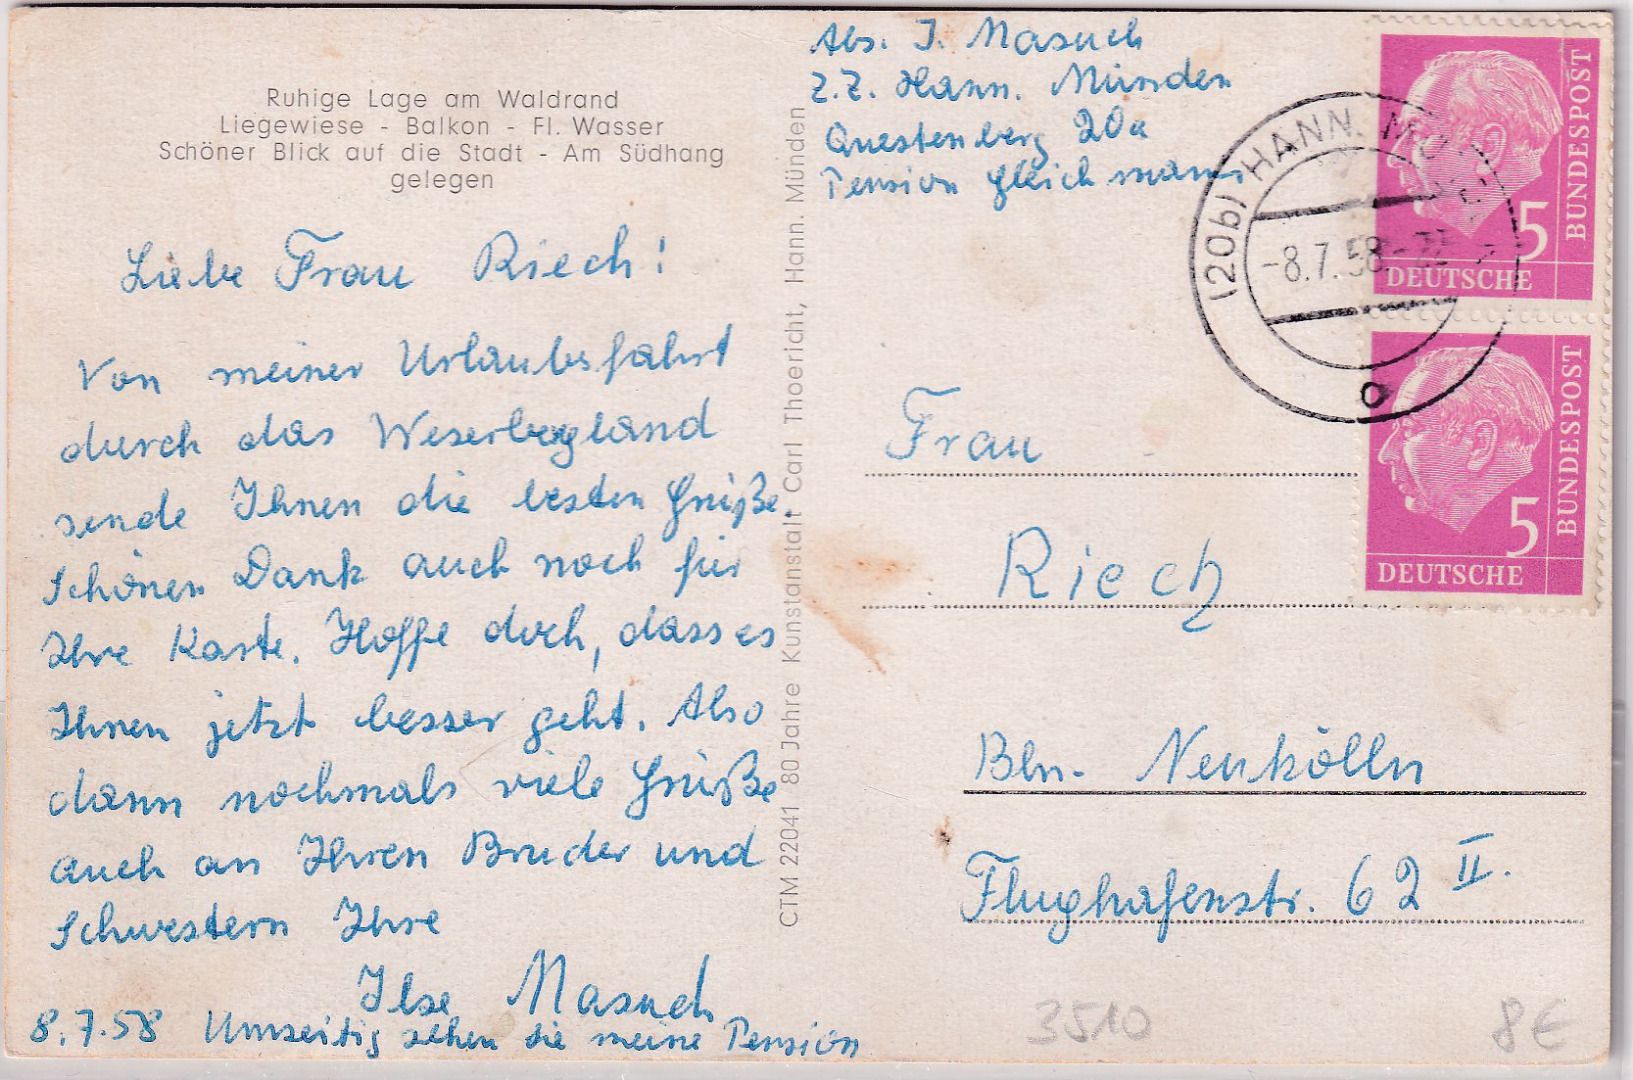 Ruhige Lage am Waldrand
Liegewiese - Balkon - Fl. Wasser
Schöner Blick auf die Stadt - Am Südhang
gelegen
Liebe Frau Riech!
Von meiner Urlaubsfahrt
durch das Weserbergland
sende Ihnen die besten Grüße.
Schönen Dank auch noch für
Ihre Karte. Hoffe doch, dass es
Ihnen jetzt besser geht. Also
dann nochmals viele Grüße
auch an Ihren Bruder und
Schwestern Ihre
Ilse Masuch
8.7.58 Umseitig sehen sie meine Pension
CTM 22041 80 Jahre Kunstanstalt Carl Thoericht, Hann. Münden
Abs. I. Masuch
z.Z. Hann. Münden
Questenberg 20a
Pension Gleichmann
(20b) HANN. MÜNDEN
-8.7.58
a
5
BUNDESPOST
DEUTSCHE
5
BUNDESPOST
DEUTSCHE
Frau
Riech
Bln. Neukölln
Flughafenstr. 62 II.
3510
8€